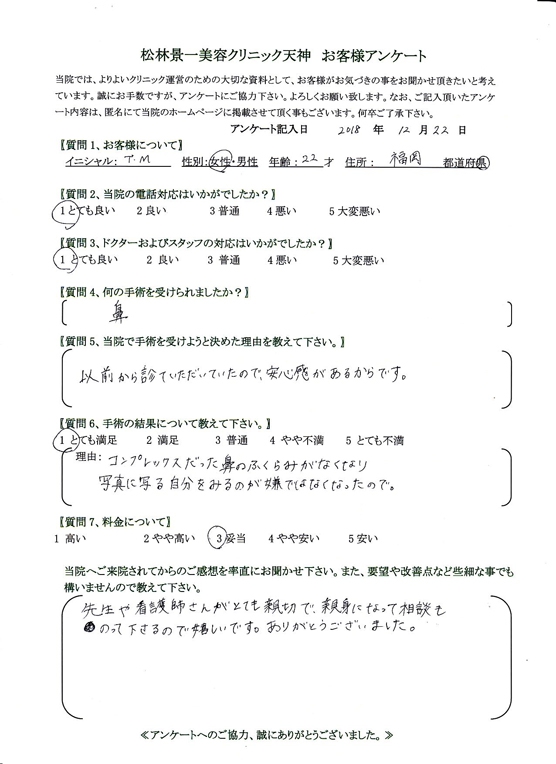 松林景一美容クリニック天神 お客様アンケート
当院では、よりよいクリニック運営のための大切な資料として、お客様がお気づきの事をお聞かせ頂きたいと考え
ています。誠にお手数ですが、アンケートにご協力下さい。よろしくお願い致します。なお、ご記入頂いたアンケ
ート内容は、匿名にて当院のホームページに掲載させて頂く事もございます。何卒ご了承下さい。
アンケート記入日 2018 年 12 月 22 日
【質問1、お客様について】
イニシャル: T.M 性別:女性・男性 年齢:22 才 住所: 福岡 都道府県
【質問2、当院の電話対応はいかがでしたか?】
1 とても良い 2 良い 3 普通 4 悪い 5 大変悪い
【質問3、ドクターおよびスタッフの対応はいかがでしたか?】
1 とても良い 2 良い 3 普通 4 悪い 5 大変悪い
【質問4、何の手術を受けられましたか?】
鼻
【質問5、当院で手術を受けようと決めた理由を教えて下さい。】
以前から診ていただいていたので、安心感があるからです。
【質問6、手術の結果について教えて下さい。】
1 とても満足 2 満足 3 普通 4 やや不満 5 とても不満
理由: コンプレックスだった鼻のふくらみがなくなり
写真に写る自分をみるのが嫌ではなくなったので。
【質問7、料金について】
1 高い 2 やや高い 3 妥当 4 やや安い 5 安い
当院へご来院されてからのご感想を率直にお聞かせ下さい。また、要望や改善点など些細な事でも
構いませんので教えて下さい。
先生や看護師さんがとても親切で、親身になって相談も
のって下さるので嬉しいです。ありがとうございました。
≪アンケートへのご協力、誠にありがとうございました。≫